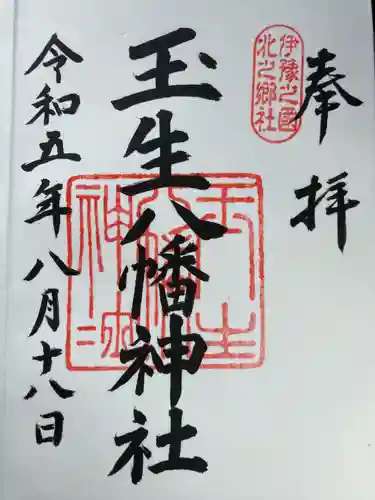 奉拝
伊豫之國
北之郷社
玉生八幡神社
令和五年八月十八日